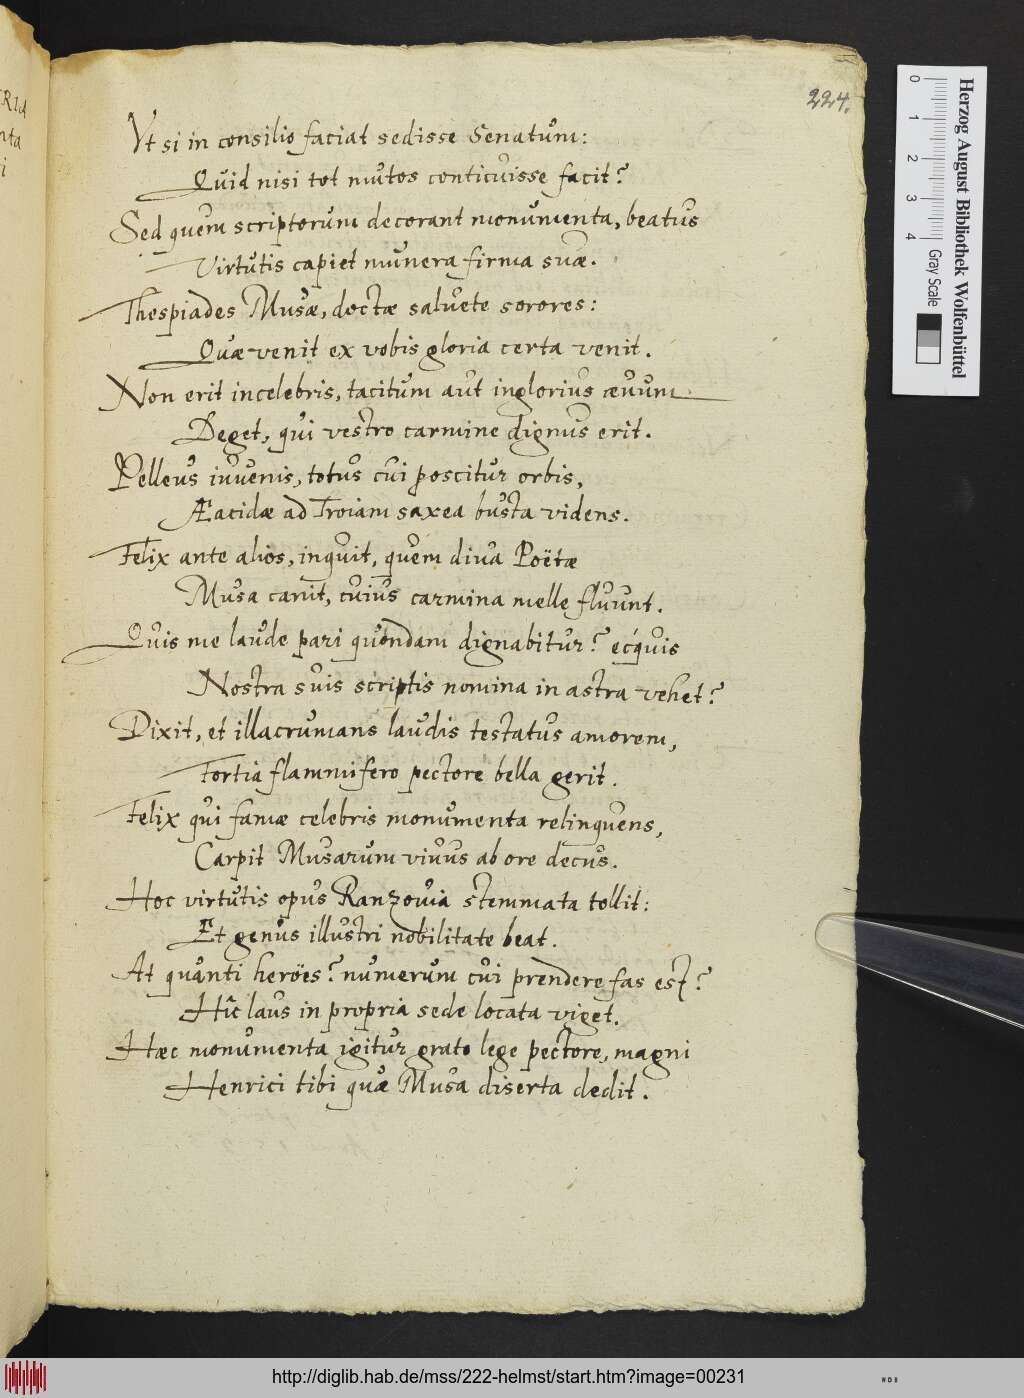 224.
Vt si in consilio faciat sedisse Senatum:
Quid nisi tot mutos conticuisse facit?
Sed quem scriptorum decorant monumenta, beatus
Virtutis capiet munera firma suæ.
Thespiades Musæ, doctæ saluete sorores:
Quæ venit ex vobis gloria certa venit.
Non erit incelebris, tacitum aut inglorius æuum
Deget, qui vestro carmine dignus erit.
Pelleus iuuenis, totus cui poscitur orbis,
Æacidæ ad Troiam saxea busta videns.
Felix ante alios, inquit, quem diua Poëtæ
Musa canit, cuius carmina melle fluunt.
Quis me laude pari quondam dignabitur? ecquis
Nostra suis scriptis nomina in astra vehet?
Dixit, et illacrumans laudis testatus amorem,
Fortia flammifero pectore bella gerit.
Felix qui famæ celebris monumenta relinquens,
Carpit Musarum viuus ab ore decus.
Hoc virtutis opus Ranzouia stemmata tollit:
Et genus illustri nobilitate beat.
At quanti heröes? numerum cui prendere fas est?
Hîc laus in propria sede locata viget.
Hæc monumenta igitur grato lege pectore, magni
Henrici tibi quæ Musa diserta dedit.
Herzog August Bibliothek Wolfenbüttel
0 1 2 3 4
Gray Scale
http://diglib.hab.de/mss/222-helmst/start.htm?image=00231